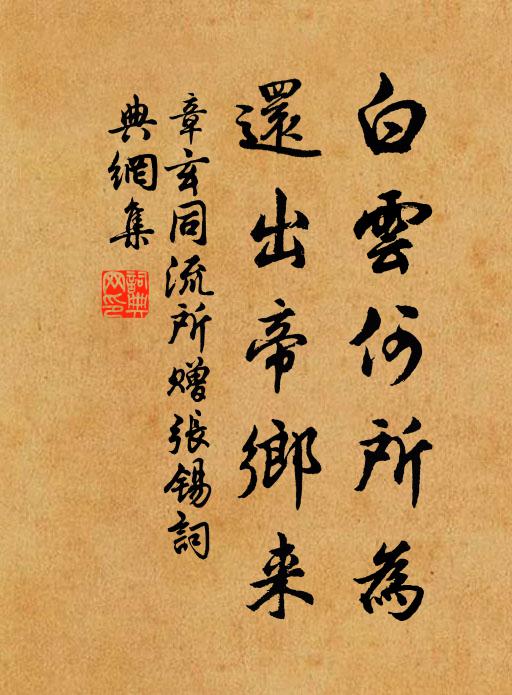 白雲何所為
還出帝鄉来
章玄同流所贈張錫詞
典網集
詞典網印